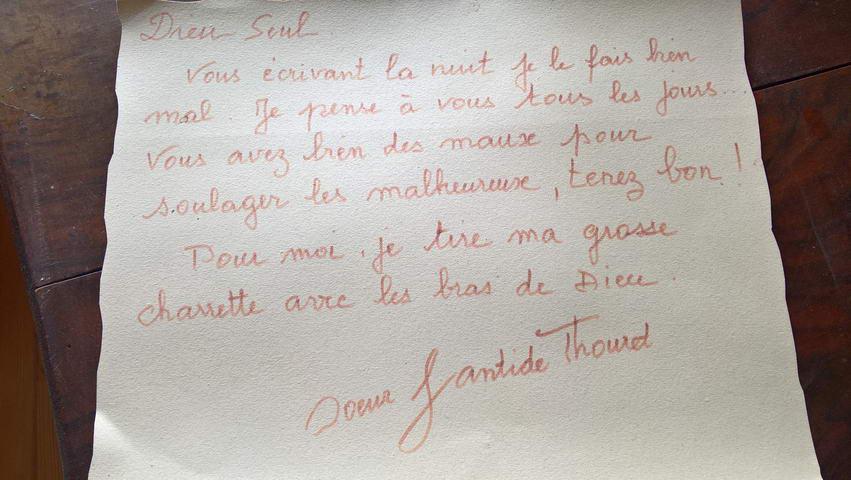 Dieu Seul
Vous écrivant la nuit je le fais bien
mal. Je pense à vous tous les jours...
Vous avez bien des maux pour
soulager les malheureux, tenez bon !
Pour moi, je tire ma grosse
charrette avec les bras de Dieu.
Soeur Jantide Thouret